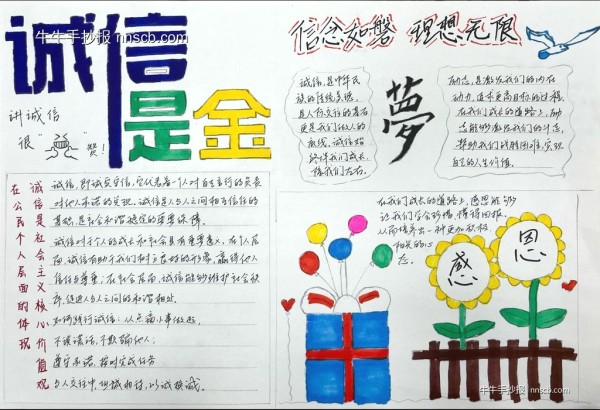 牛牛手抄报 nnscb.com
诚信
是金
讲诚信
很“ ”赞!
信念如磐 理想无限
诚信,是中华民
族的传统美德,
是人际交往的基石
更是我们做人的
底线,诚信始
终伴我们成长,
夢
励志,是激发我们的内在
动力,追求更高目标的过程,
在我们成长的道路上,励
志能够激发我们的斗志,
帮助我们战胜困难,实现
自己的人生价值。
诚信是社会主义核心价值观
在公民个人层面的体现
诚信,即诚实守信,它代表着一个人对自己言行的负责
对他人承诺的兑现,诚信是人与人之间相互信任的
基础,是社会和谐稳定的重要保障。
诚信对于个人的成长和社会具有重要意义,在个人层
面,诚信有助于我们树立良好的形象,赢得他人
信任与尊重;在社会层面,诚信能够维护社会秩
序,促进人与人之间的和谐相处。
如何践行诚信:从点滴小事做起,
不说谎话,不欺骗他人;
遵守承诺,按时完成任务
与人交往中,坦诚相待,以诚换诚。
在我们成长的道路上,感恩能够
让我们学会珍惜,懂得回报,
从而培养出一种更加积极、
态。
感
恩
牛牛手抄报 nnscb.com